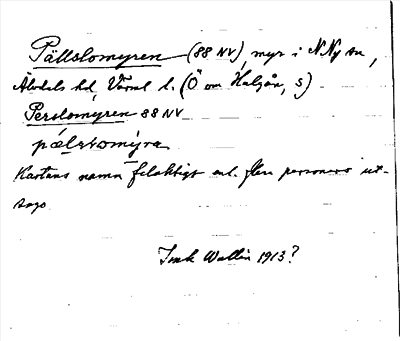 Pällstomyren (88 NV), myr i N Ny sn,
Älvdals hd, Värml l. (Ö om Haljån, S)
Perstomyren 88 NV
pælstomýra
Kartans namn felaktigt enl. flera personers ut-
sago.
Wallin 1913?